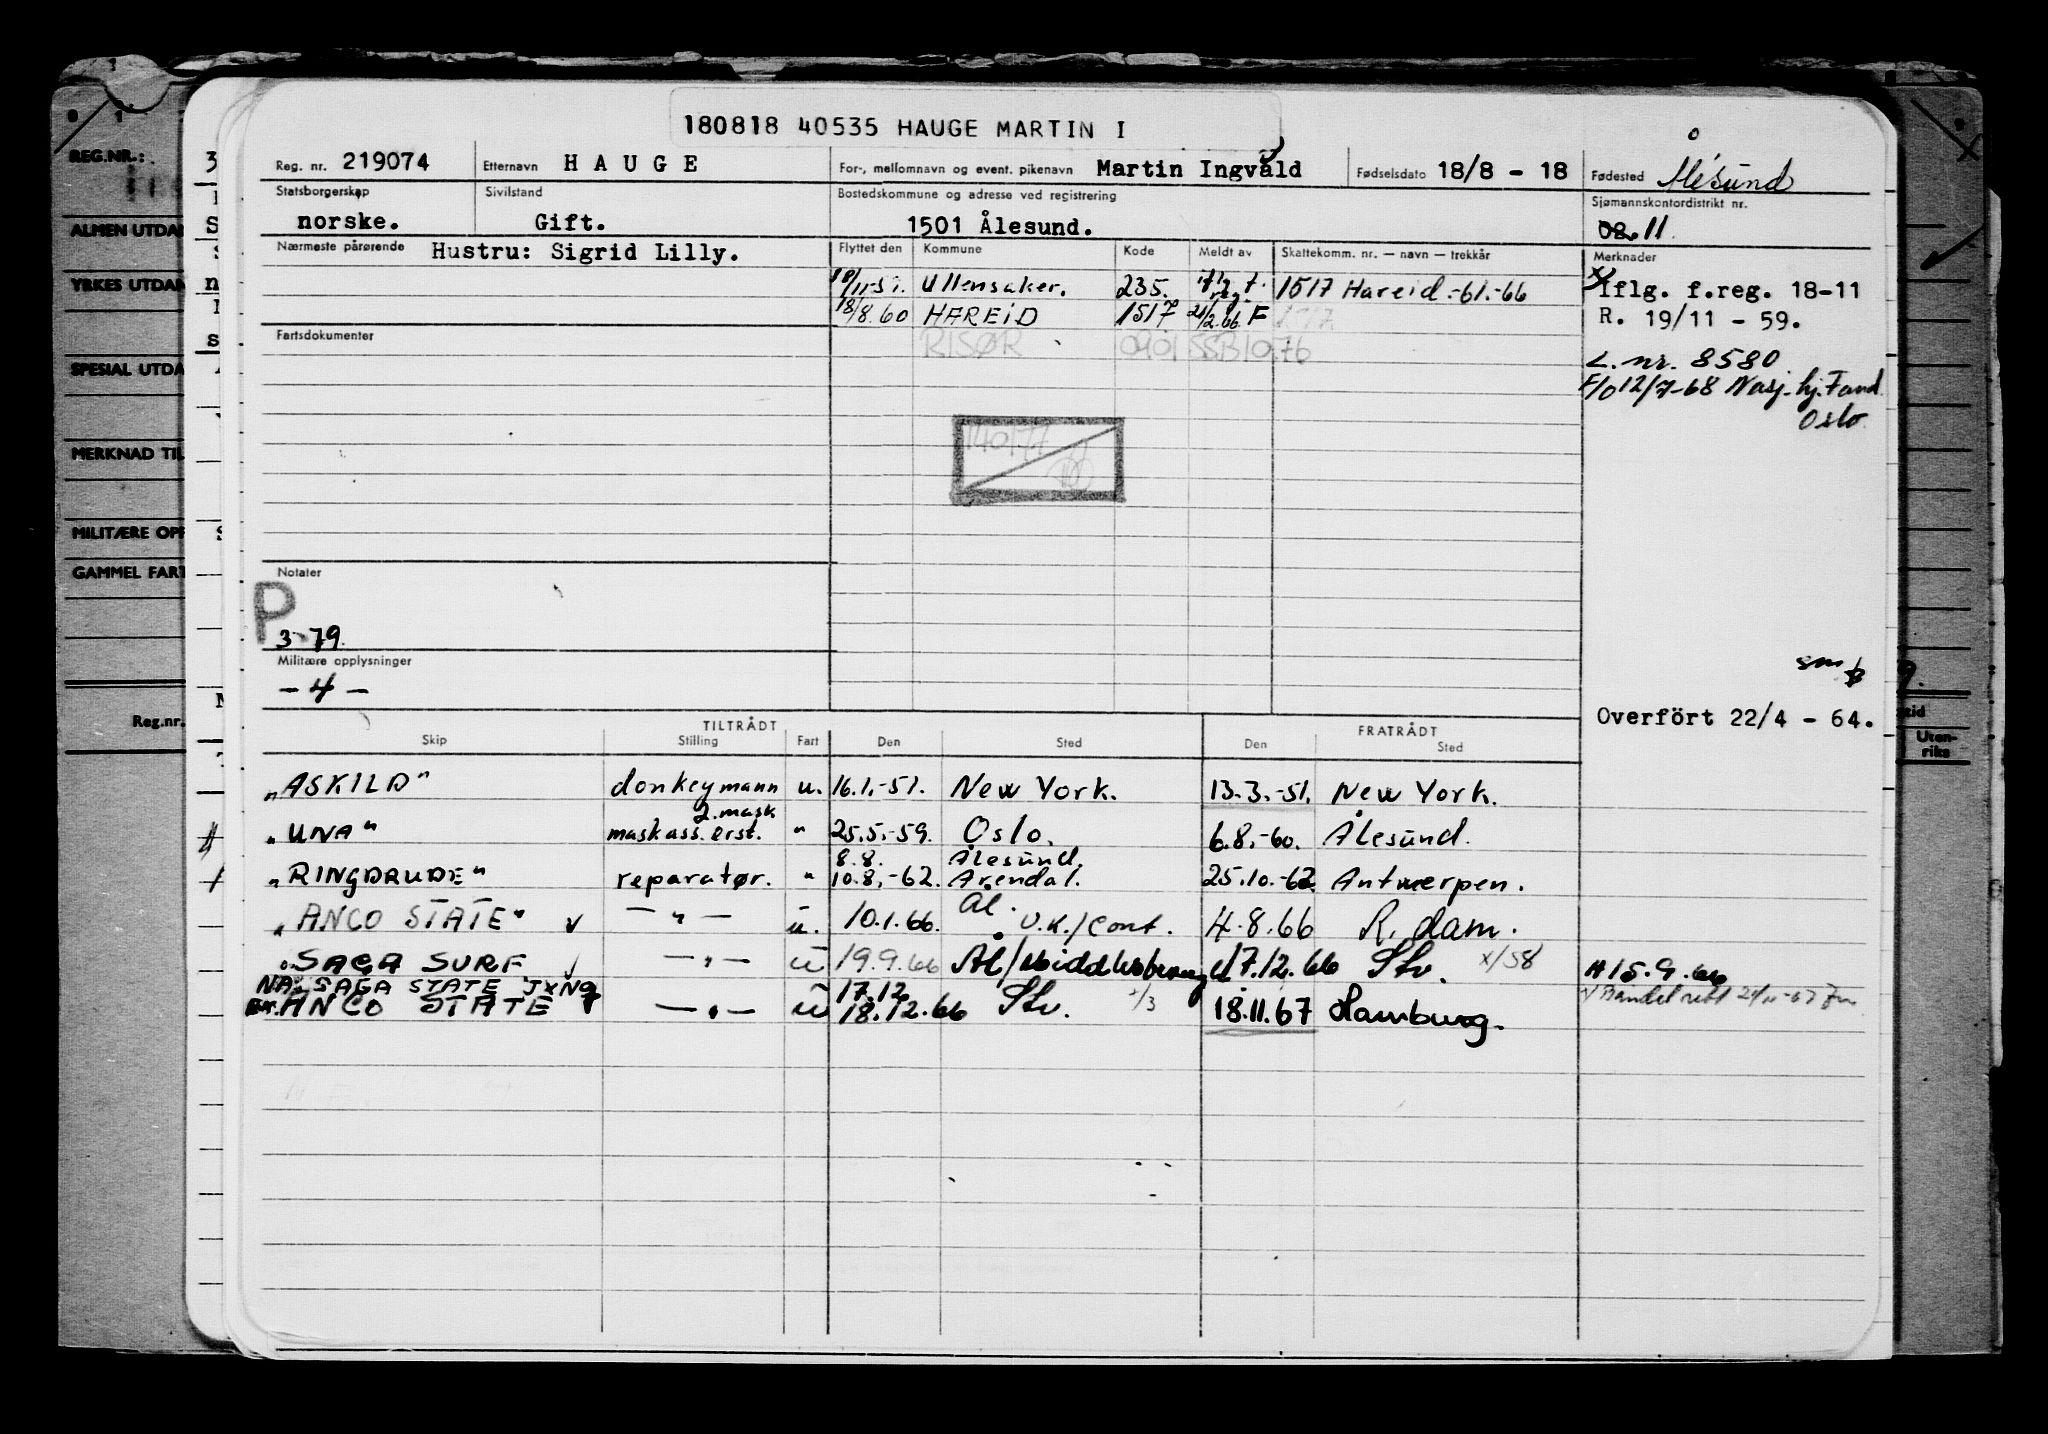 180818 40535 HAUGE MARTIN I
Reg. nr. 219074 Etternavn HAUGE For-, mellomnavn og event. pikenavn Martin Ingvald Fødselsdato 18/8 - 18 Fødested Ålesund
Statsborgerskap norske. Sivilstand Gift. Bostedskommune og adresse ved registrering 1501 Ålesund. Sjømannskontordistrikt nr. 02. 11
Nærmeste pårørende Hustru: Sigrid Lilly. Flyttet den Kommune Kode Meldt av Skattekomm. nr. — navn — trekkår Merknader
Ullensaker. 235. 1517 Hareid -61.-66
18/8.60 HAREID 1517 21/2.66 F
RISØR 0901 SSB 1076
Iflg. f.reg. 18-11
R. 19/11 - 59.
L. nr. 8580
F/O 12/7-68 Nasj. hj. Fond
Oslo
Fartsdokumenter
140177
Notater
P
3-79.
Militære opplysninger
- 4 -
Overfört 22/4 - 64.
TILTRÅDT FRATRÅDT
Skip Stilling Fart Den Sted Den Sted
"ASKILD" donkeymann u. 16.1.-51. New York. 13.3.-51. New York.
2. mask
"UNA" maskass. erst. " 25.5.-59. Oslo. 6.8.-60. Ålesund.
8.8. Ålesund.
"RINGDRUDE" reparatør. " 10.8.-62. Arendal. 25.10.-62. Antwerpen.
"ANCO STATE" v — " — u. 10.1.66. Ål. U.K./Cont. 4.8.66 R.dam.
"SAGA SURF — " — u 19.9.66 Ål/Middlesbroug 17.12.66 Stv. x/58 A 15.9.66
SAGA STATE JXNQ 17.12
ANCO STATE — " — u 18.12.66 Stv. 18.11.67 Hamburg.
REG.NR.:
ALMEN UTDA
YRKES UTDA
SPESIAL UTDA
MERKNAD TIL
MILITÆRE OPP
GAMMEL FART
Reg.nr.
Uten-
riks